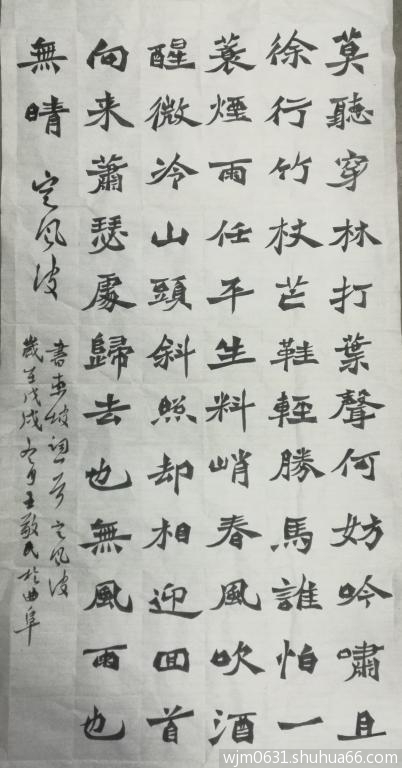 莫聽穿林打葉聲何妨吟嘯且
徐行竹杖芒鞋輕勝馬誰怕一
蓑煙雨任平生料峭春風吹酒
醒微冷山頭斜照却相迎回首
向来蕭瑟處歸去也無風雨也
無晴 定风波
書東坡詞一首定风波
歲在戊戌冬月王敬民於曲阜
wjm0631.shuhua66.com